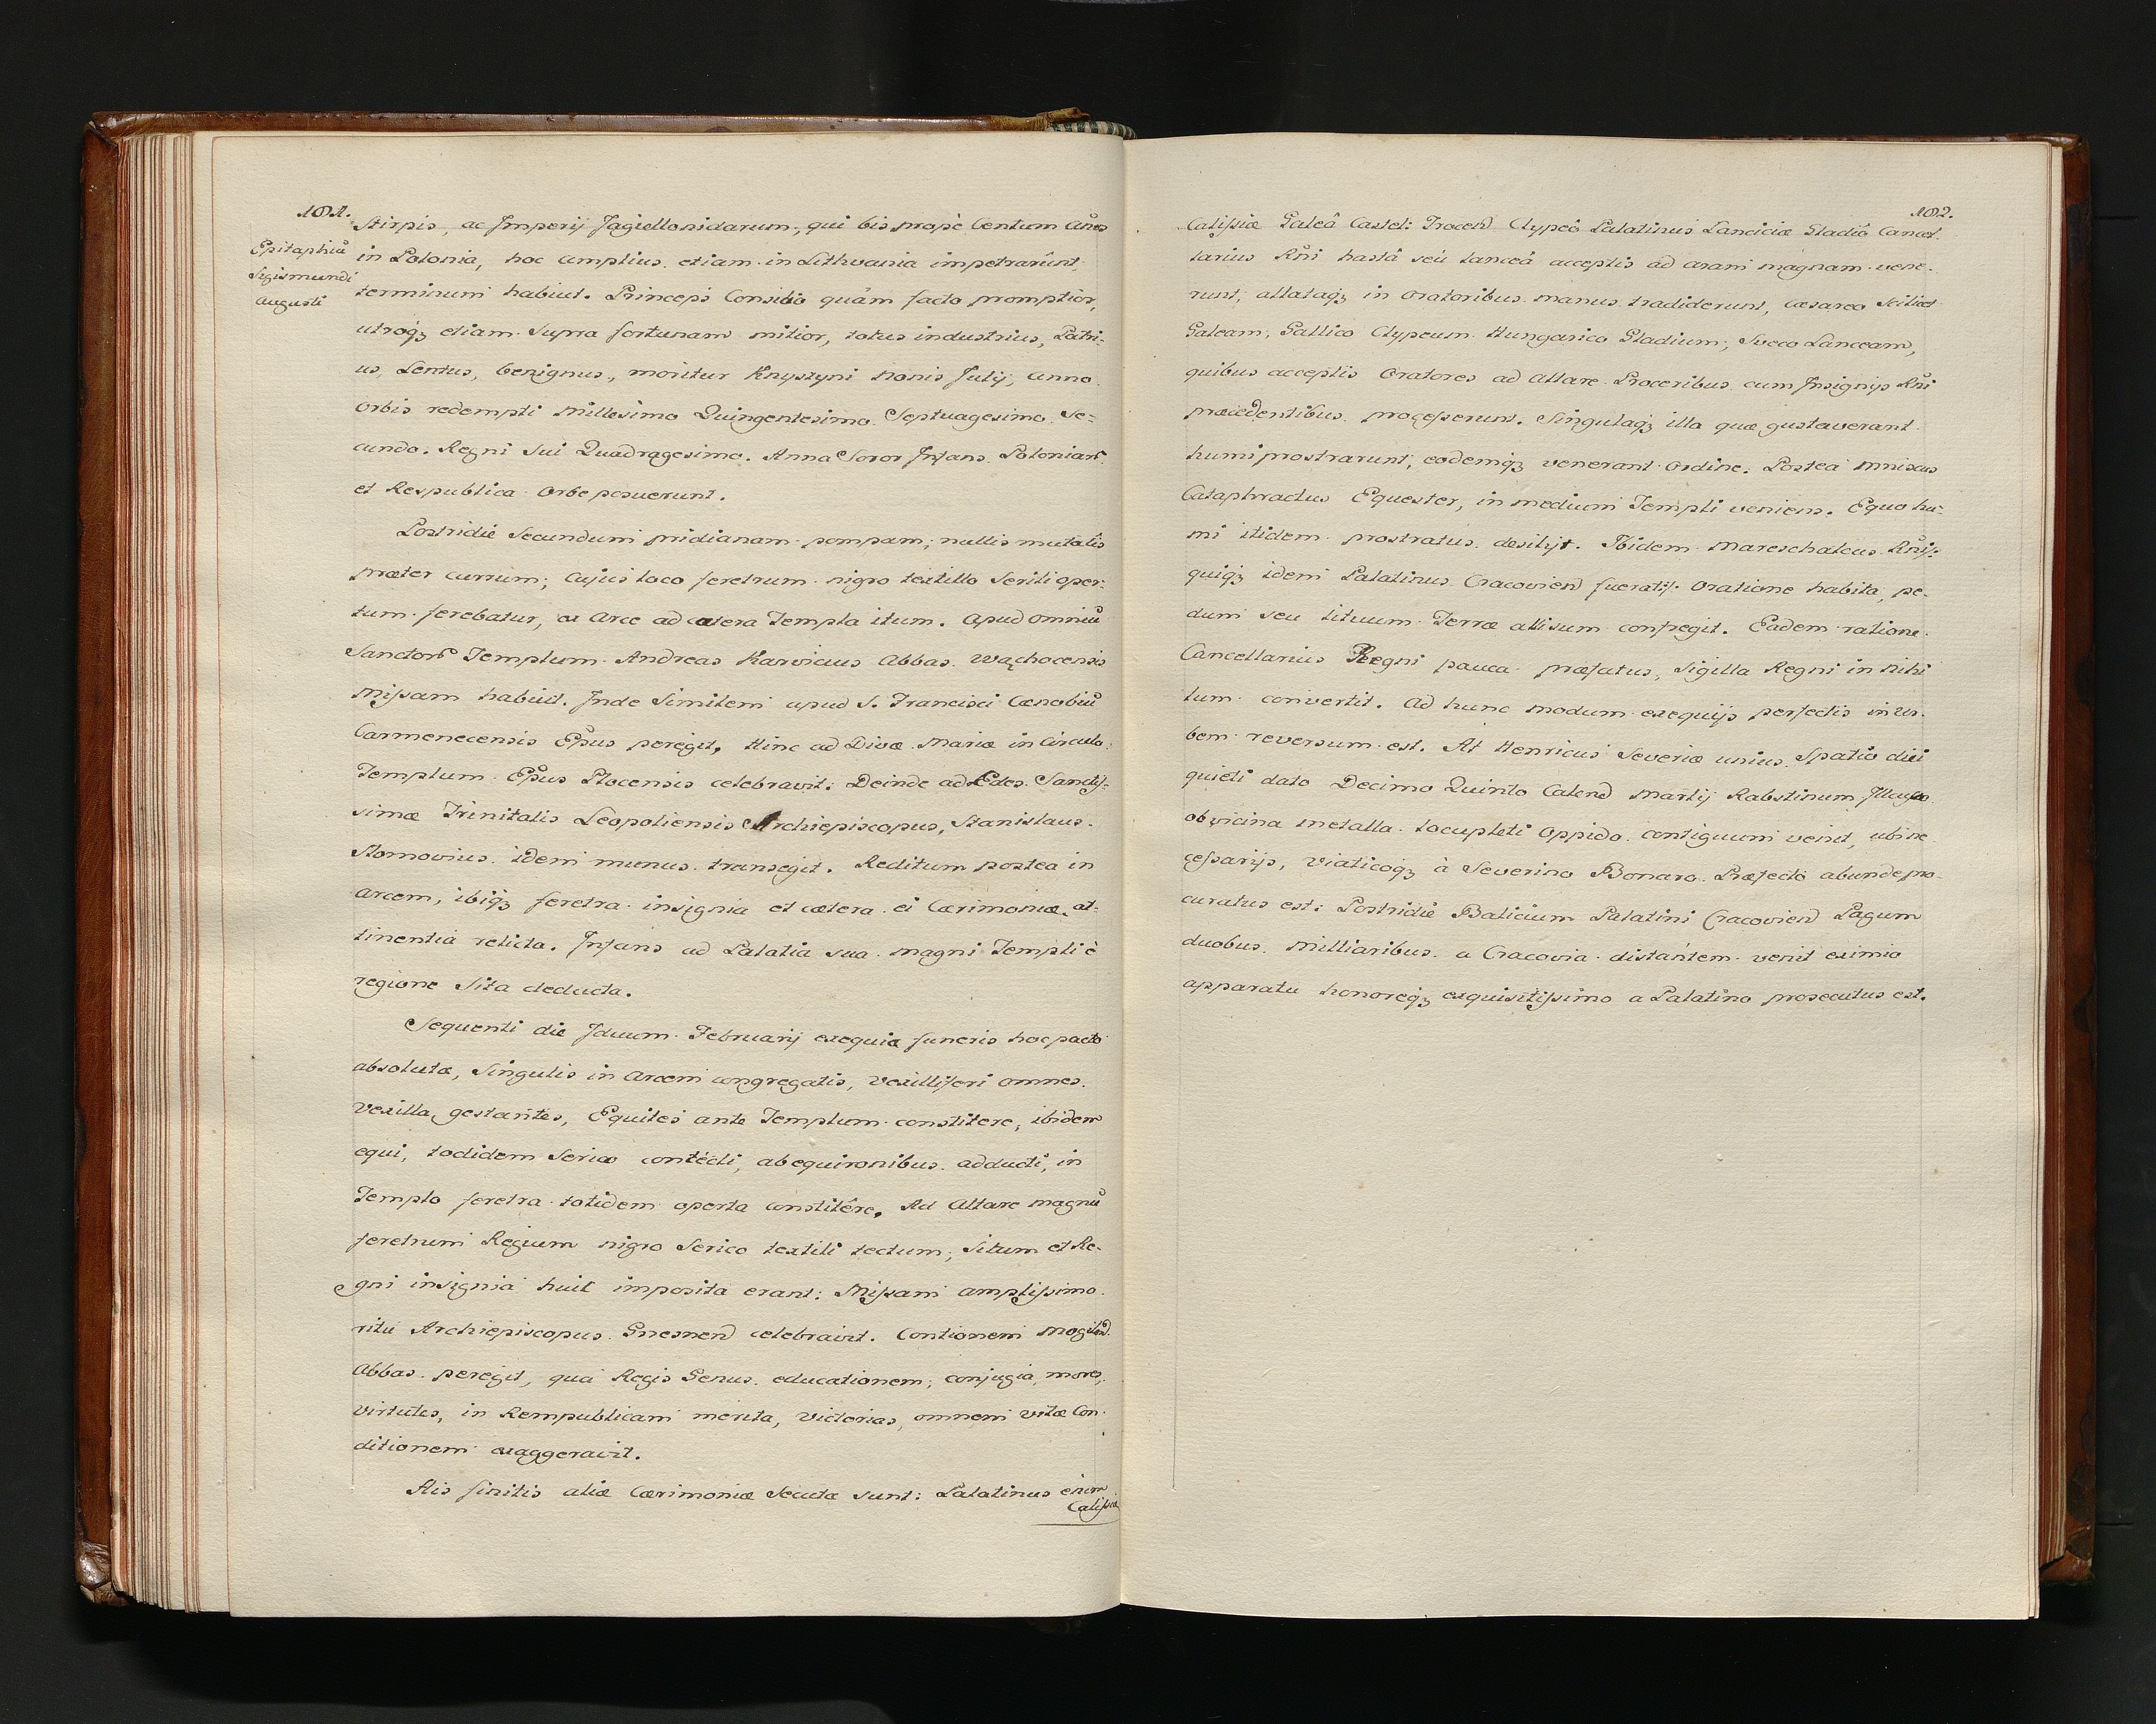 181.
Epitaphiū
Sigismundi
Augusti
Stirpis, ac Imperij Jagiellonidarum, qui bis propè Centum Años
in Polonia, hoc amplius etiam in Lithvania impetrarûnt,
terminum habuit. Princeps Consilio quâm facto promptior,
utroqꝫ etiam supra fortunam mitior, totus industrius, Patri-
us, Lentus, benignus, moritur Knyszyni Nonis Julij, anno
Orbis redempti Millesimo Quingentesimo Septuagesimo Se-
cundo. Regni Sui Quadragesimo. Anna Soror Infans Poloniar̃
et Respublica Orbe posuerunt.
Postridie Secundum pridianam pompam, nullis mutatis
præter currum; Cujus loco feretrum nigro textillo Seriti oper-
tum ferebatur, ex Arce ad cætera Templa itum. Apud Omniū
Sanctor̃ Templum Andreas Karvicius Abbas Wąchocensis
Missam habuit. Inde Similem apud S. Francisci Cœnobiū
Carmenecensis Ep̃us peregit, Hinc ad Divæ Mariæ in Circulo
Templum Ep̃us Plocensis celebravit: Deinde ad Edes Sanctis-
simæ Trinitatis Leopoliensis Archiepiscopus, Stanislaus
Slomovius idem munus transegit. Reditum postea in
arcem, ibiqꝫ feretra insignia et cætera ei Cærimoniæ at-
tinentia relicta. Infans ad Palatia sua magni Templi è
regione Sita deducta.
Sequenti die Iduum Februarij exequiæ funeris hoc pacto
absolutæ, Singulis in Arcem congregatis, Vexilliferi omnes
Vexilla gestantes, Equites ante Templum constitere, ibidem
equi, todidem Serico contècti, ab equironibus adducti, in
Templo feretra totidem operta constitêre, Ad Altare magnū
feretrum Regium nigro Serico textili tectum, Situm et Re-
gni insignia huic imposita erant: Missam amplissimo
ritu Archiepiscopus Gnesnen̄ celebravit. Contionem Mogilen̄
Abbas peregit, qua Regis Genus educationem, conjugia, mores,
Virtutes, in Rempublicam merita, Victorias, omnem vitæ Con-
ditionem exaggeravit.
His finitis aliæ Cærimoniæ Secutæ sunt: Palatinus enim
Calissiæ
182.
Calissiæ Galeâ Castel: Trocen̄ Clypeô Palatinus Lanciciæ Gladiô Cancel-
larius Rñi hastâ seu lanceâ acceptis ad aram magnam vene-
runt, allataqꝫ in Oratoribus manus tradiderunt, Cæsareo Scilicet
Galeam, Gallico Clypeum Hungarico Gladium, Sveco Lanceam,
quibus acceptis Oratores ad Altare Proceribus cum Insignijs Rñi
præcedentibus processerunt. Singulaqꝫ illa quæ gustaverant
humi prostrarunt, eodemqꝫ venerant Ordine. Postea Mniscus
Cataphractus Equester, in medium Templi veniens. Equo hu-
mi itidem prostratus desilijt. Ibidem Mareschalcus Rñi,
quiqꝫ idem Palatinus Cracovien̄ fuerat Oratione habita, pe-
dum seu lituum Terræ allisum confregit. Eadem ratione
Cancellarius Regni pauca præfatus, Sigilla Regni in Nihi
lum convertit. Ad hunc modum exequijs perfectis in Ur-
bem reversum est. At Henricus Severiæ unius Spatio diei
quieti dato Decimo Quinto Calend̄ Martij Rabstinum
ob vicina metalla locupleti Oppido contiguum venit, ubi ne-
cessarijs, Viaticoqꝫ à Severino Bonaro Præfecto abunde pro-
curatus est: Postridie Balicium Palatini Cracovien̄ Pagum
duobus Milliaribus a Cracovia distántem venit eximio
apparatu honoreqꝫ exquisitissimo a Palatino prosecutus est.